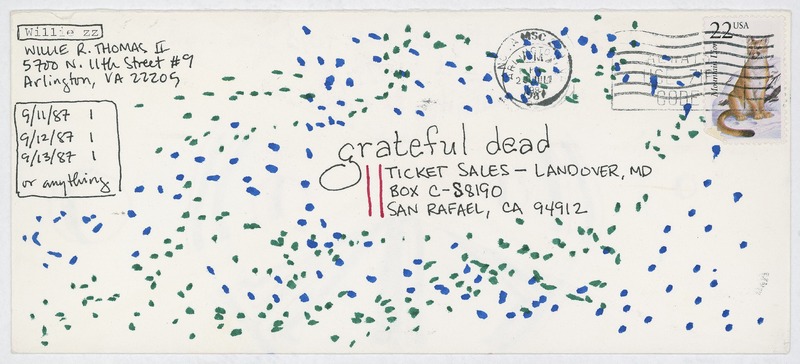 Willie zz
WILLIE R. THOMAS II
5700 N. 11th Street #9
Arlington, VA 22205
9/11/87 1
9/12/87 1
9/13/87 1
or anything
grateful dead
TICKET SALES – LANDOVER, MD
BOX C-S8190
SAN RAFAEL, CA 94912
MSC
22 USA
Mountain Lion
CODE